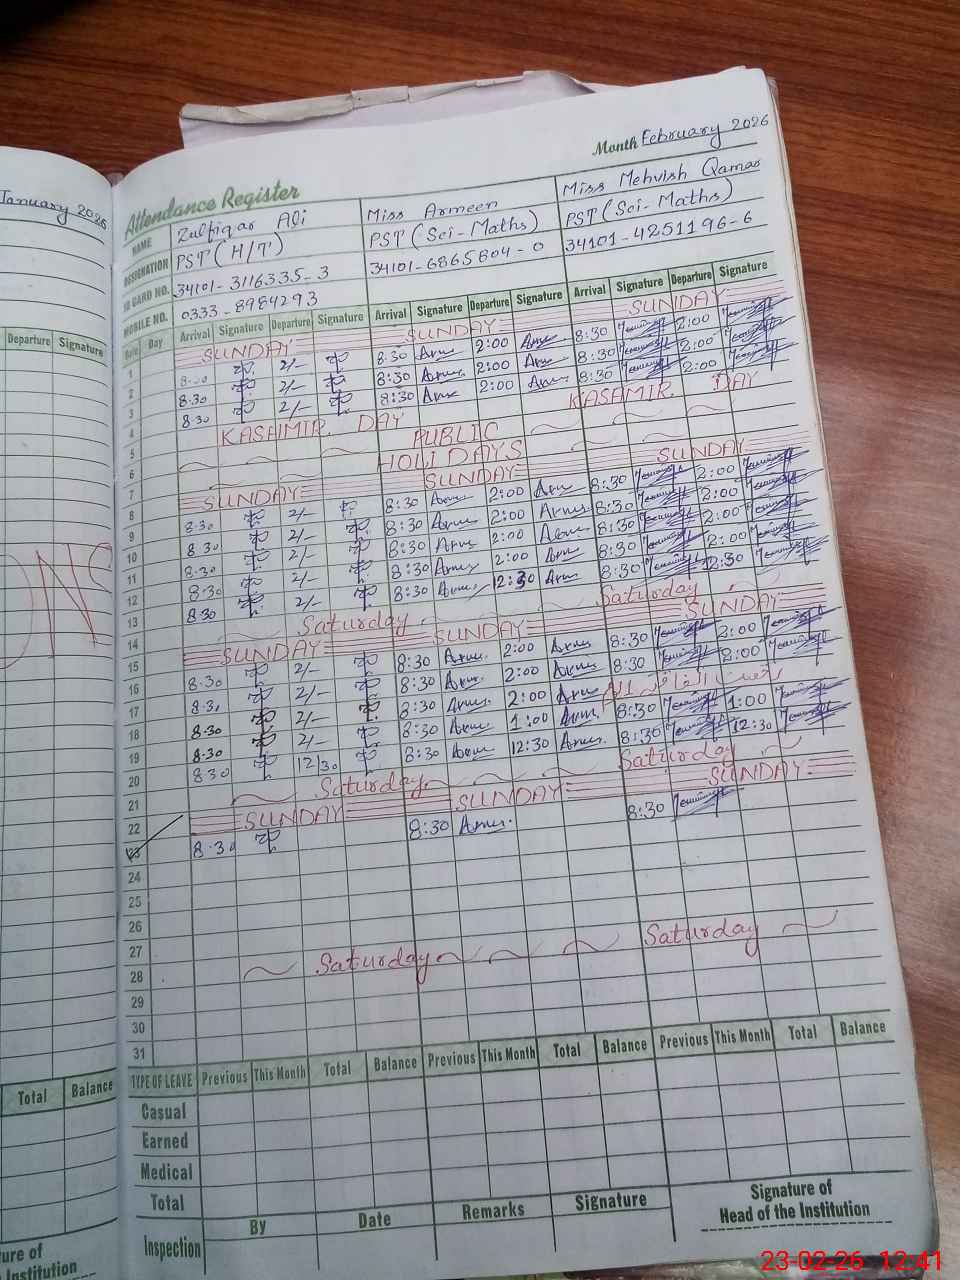 January 2026
Month February 2026
Attendance Register
NAME Zulfiqar Ali Miss Armeen Miss Mehvish Qamar
DESIGNATION PST (H/T) PST (Sci-Maths) PST (Sci-Maths)
ID CARD NO. 34101-3116335-3 34101-6865804-0 34101-4251196-6
MOBILE NO. 0333-8984293
Departure Signature
Date Day Arrival Signature Departure Signature Arrival Signature Departure Signature Arrival Signature Departure Signature
1 SUNDAY SUNDAY SUNDAY
2 8:30 2/- 8:30 2:00 8:30 2:00
3 8:30 2/- 8:30 2:00 8:30 2:00
4 8:30 2/- 8:30 2:00 8:30 2:00
5 KASHMIR DAY KASHMIR DAY
6 PUBLIC
7 HOLIDAYS
8 SUNDAY SUNDAY SUNDAY
9 8:30 2/- 8:30 2:00 8:30 2:00
10 8:30 2/- 8:30 2:00 8:30 2:00
11 8:30 2/- 8:30 2:00 8:30 2:00
12 8:30 2/- 8:30 2:00 8:30 2:00
13 8:30 2/- 8:30 12:30 8:30 12:30
14 Saturday Saturday
15 SUNDAY SUNDAY SUNDAY
16 8:30 2/- 8:30 2:00 8:30 2:00
17 8:30 2/- 8:30 2:00 8:30 2:00
18 8:30 2/- 8:30 2:00
19 8:30 2/- 8:30 1:00 8:30 1:00
20 8:30 12/30 8:30 12:30 8:30 12:30
21 Saturday Saturday
22 SUNDAY SUNDAY SUNDAY
23 8:30 8:30 8:30
24
25
26
27
28 Saturday Saturday
29
30
31
Total Balance
TYPE OF LEAVE Previous This Month Total Balance Previous This Month Total Balance Previous This Month Total Balance
Casual
Earned
Medical
Total
By Date Remarks Signature
Inspection
Signature of
Head of the Institution
ure of
Institution
23-02-26 12:41